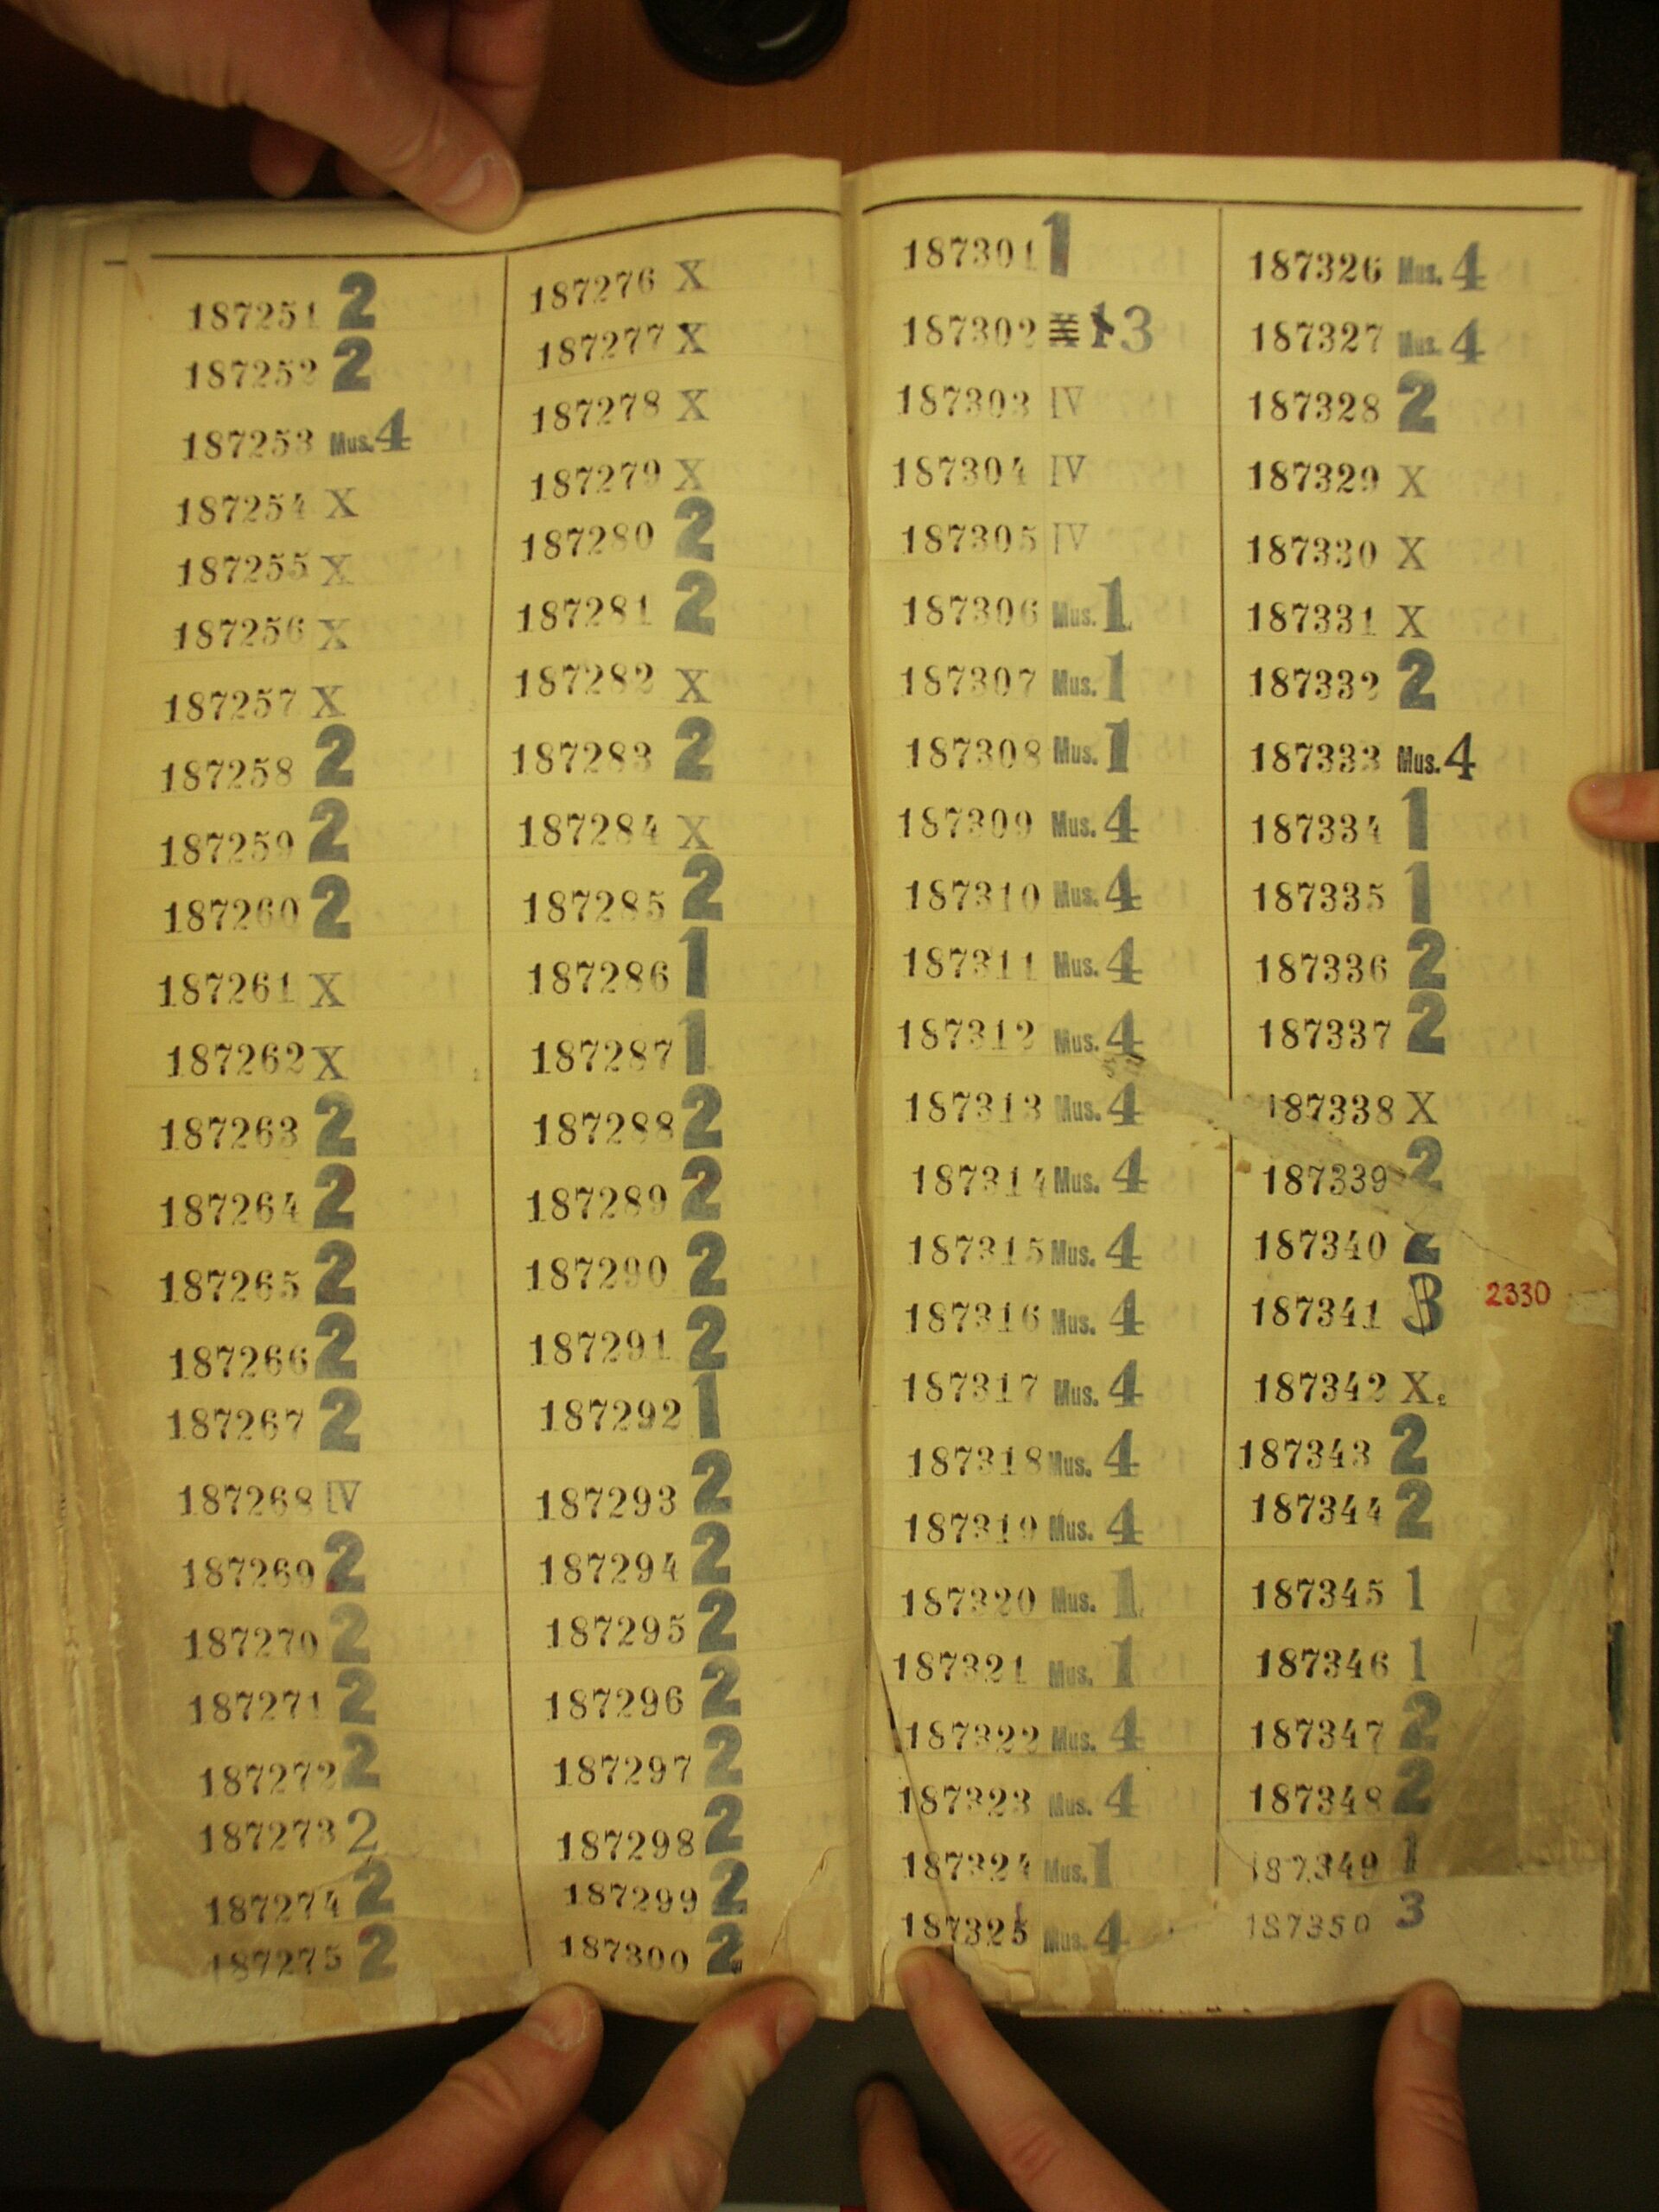 187251 2
187252 2
187253 Mus. 4
187254 X
187255 X
187256 X
187257 X
187258 2
187259 2
187260 2
187261 X
187262 X
187263 2
187264 2
187265 2
187266 2
187267 2
187268 IV
187269 2
187270 2
187271 2
187272 2
187273 2
187274 2
187275 2
187276 X
187277 X
187278 X
187279 X
187280 2
187281 2
187282 X
187283 2
187284 X
187285 2
187286 1
187287 1
187288 2
187289 2
187290 2
187291 2
187292 1
187293 2
187294 2
187295 2
187296 2
187297 2
187298 2
187299 2
187300 2
187301 1
187302 X 1 3
187303 IV
187304 IV
187305 IV
187306 Mus. 1
187307 Mus. 1
187308 Mus. 1
187309 Mus. 4
187310 Mus. 4
187311 Mus. 4
187312 Mus. 4
187313 Mus. 4
187314 Mus. 4
187315 Mus. 4
187316 Mus. 4
187317 Mus. 4
187318 Mus. 4
187319 Mus. 4
187320 Mus. 1
187321 Mus. 1
187322 Mus. 4
187323 Mus. 4
187324 Mus. 1
187325 Mus. 4
187326 Mus. 4
187327 Mus. 4
187328 2
187329 X
187330 X
187331 X
187332 2
187333 Mus. 4
187334 1
187335 1
187336 2
187337 2
187338 X
187339 2
187340 2
187341 3 2330
187342 X.
187343 2
187344 2
187345 1
187346 1
187347 2
187348 2
187349 1
187350 3